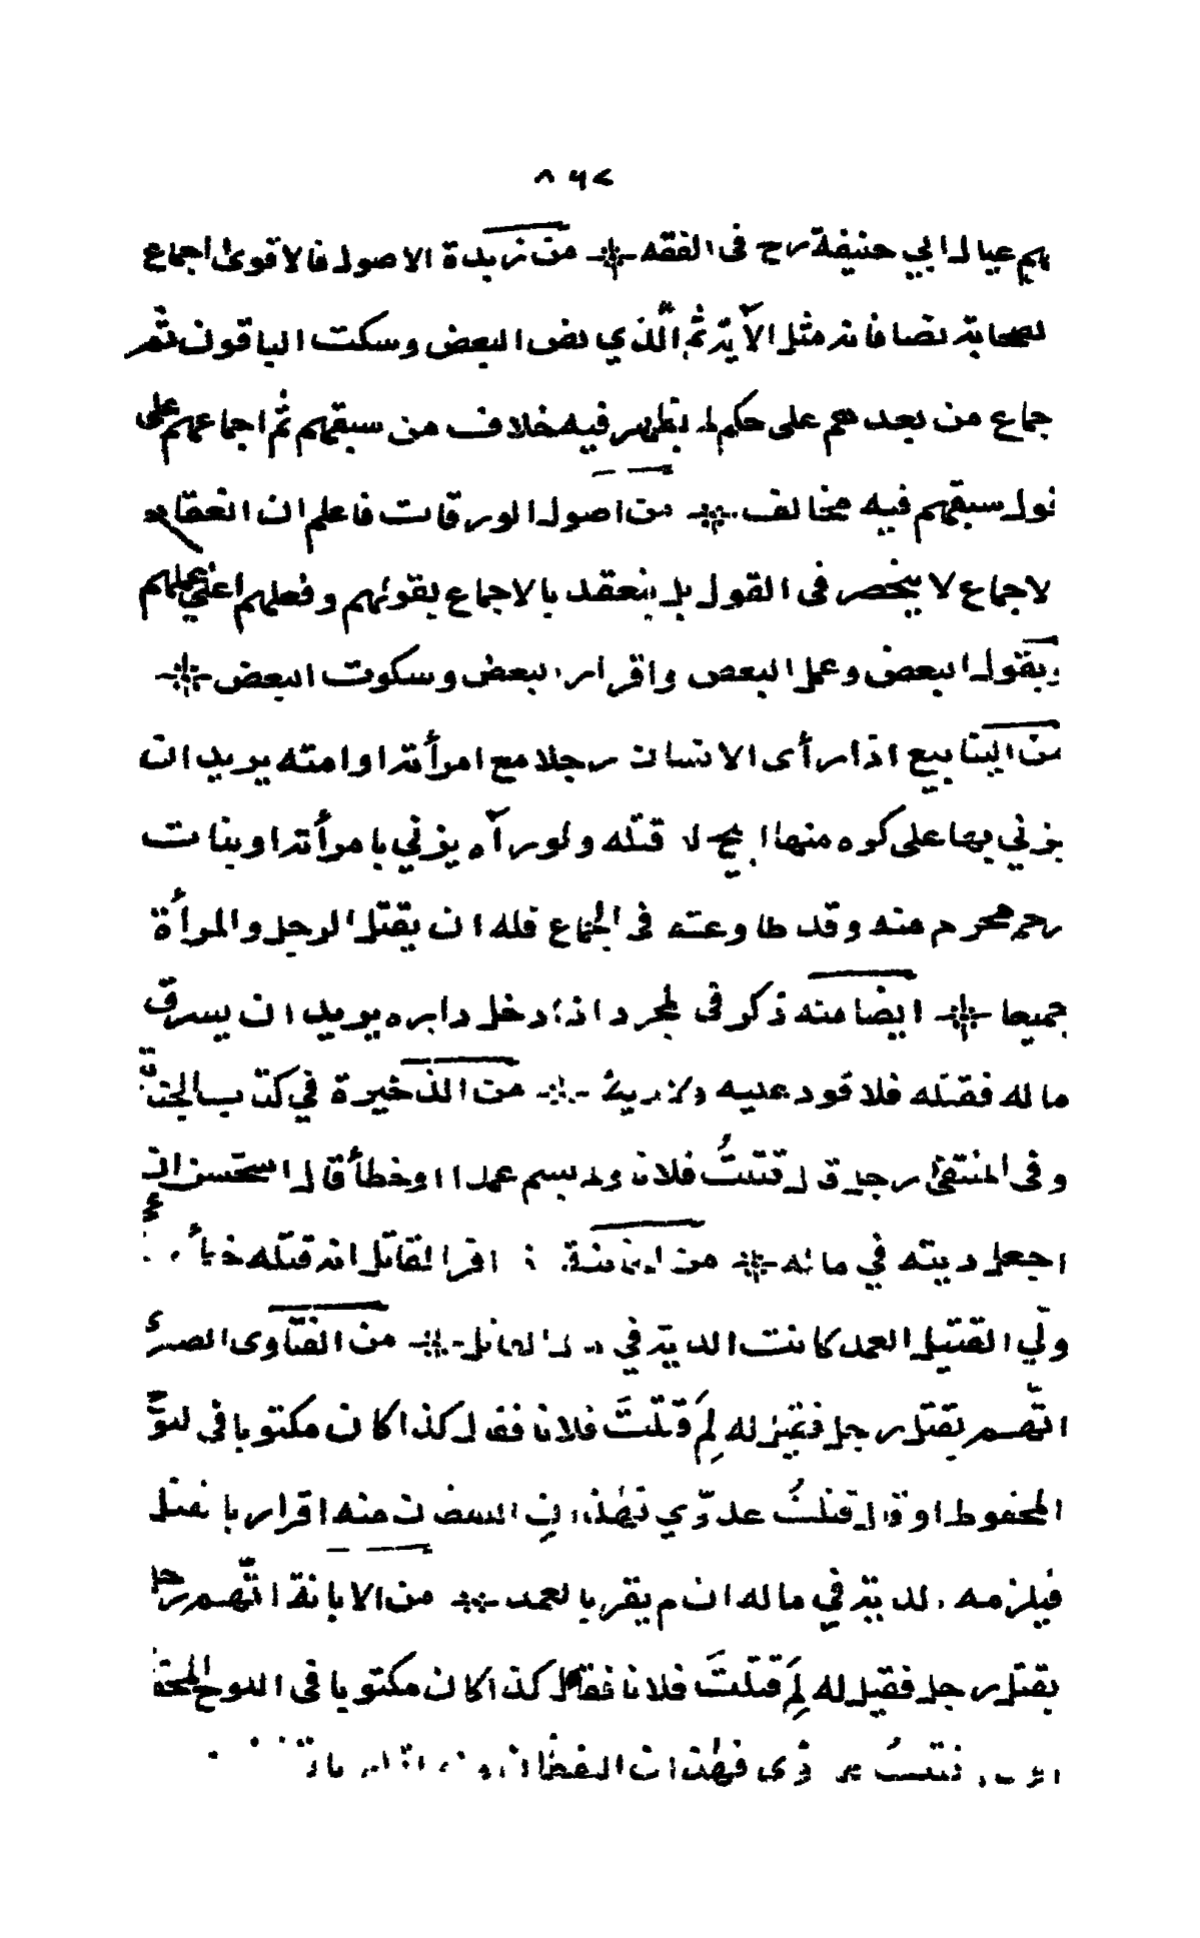 ٨٦٧
هم عيال ابي حنيفة رح فى الفقه ٭ من زبدة الاصول فالاقوى اجماع
لصحابة نصا فانه مثل الآية ثم الّذي نص البعض وسكت الباقون ثمر
جماع من بعدهم على حكم لم يظهر فيه خلاف من سبقهم ثم اجماعهم على
نول سبقهم فيه مخالف ٭ من اصول الورقات فاعلم ان انعقاد
لاجماع لا ينحصر فى القول بل ينعقد بالاجماع بقولهم وفعلهم اعني عملهم
وبقول البعض وعمل البعض واقرار البعض وسكوت البعض ٭
من الينابيع اذا رأى الانسان رجلا مع امرأته او امته يريد ان
يزني بها على كره منها ابيح له قتله ولو رآه يزني بامرأته او بنات
رحم محرم منه وقد طاوعته فى الجماع فله ان يقتل الرجل والمرأة
جميعا ٭ ايضا منه ذكر فى المجرد اذا دخل داره يريد ان يسرق
ماله فقتله فلا قود عليه ولا دية ٭ من الذخيرة في كتاب الجناية
وفى المنتقى رجل قال قتلتُ فلانا ولم يسم عمدا او خطأ قال استحسن ان
اجعل ديته في ماله ٭ من اقر القاتل انه قتله خطأ
ولي القتيل العمد كانت الدية في مال القاتل ٭ من الفتاوى الصغرى
اتّهم بقتل رجل فقيل له لِمَ قتلتَ فلانا فقال كذا كان مكتوبا فى لوح
المحفوظ او قال قتلتُ عدوّي فهذان اللفظان منه اقرار بالقتل
فيلزمه الدية في ماله ان لم يقر بالعمد ٭ من الابانة اتّهم رجل
بقتل رجل فقيل له لِمَ قتلتَ فلانا فقال كذا كان مكتوبا فى اللوح المحفوظ
قتلتُ عدوّي فهذان اللفظان